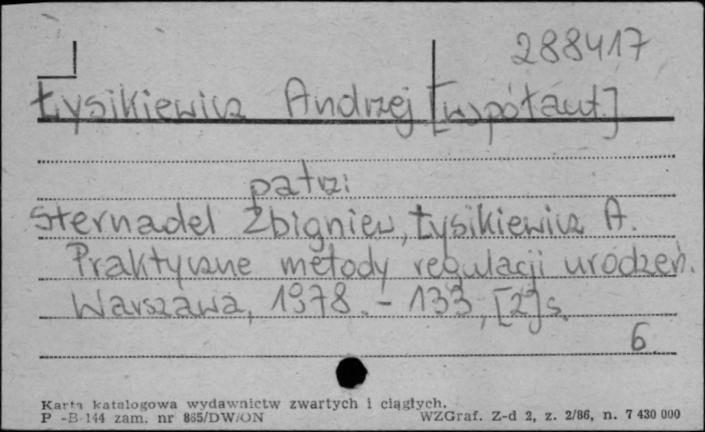 288417
Łysikiewicz Andrzej [współaut.]
patrz:
Sternadel Zbigniew, Łysikiewicz A.
Praktyczne metody regulacji urodzeń.
Warszawa, 1978. - 133, [2] s.
6.
Karta katalogowa wydawnictw zwartych i ciągłych.
P -B-144 zam. nr 865/DW/ON WZGraf. Z-d 2, z. 2/86, n. 7 430 000